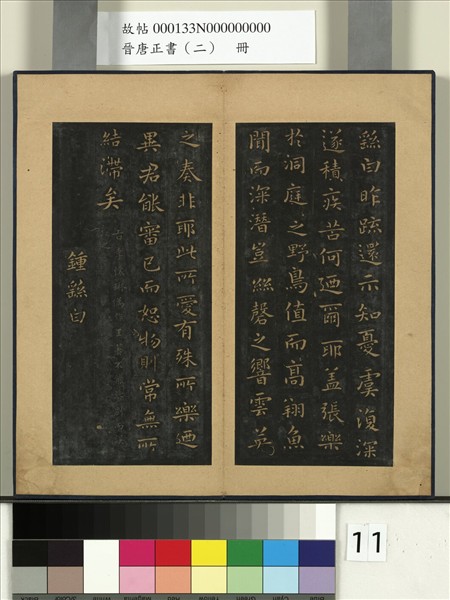 故帖 000133N000000000
晉唐正書（二） 冊
繇白昨疏還示知憂虞復深
遂積疾苦何迺爾耶蓋張樂
於洞庭之野鳥值而高翔魚
聞而深潛豈絲磬之響雲英
之奏非耶此所愛有殊所樂迺
異君能審己而恕物則常無所
結滯矣
鍾繇白
11